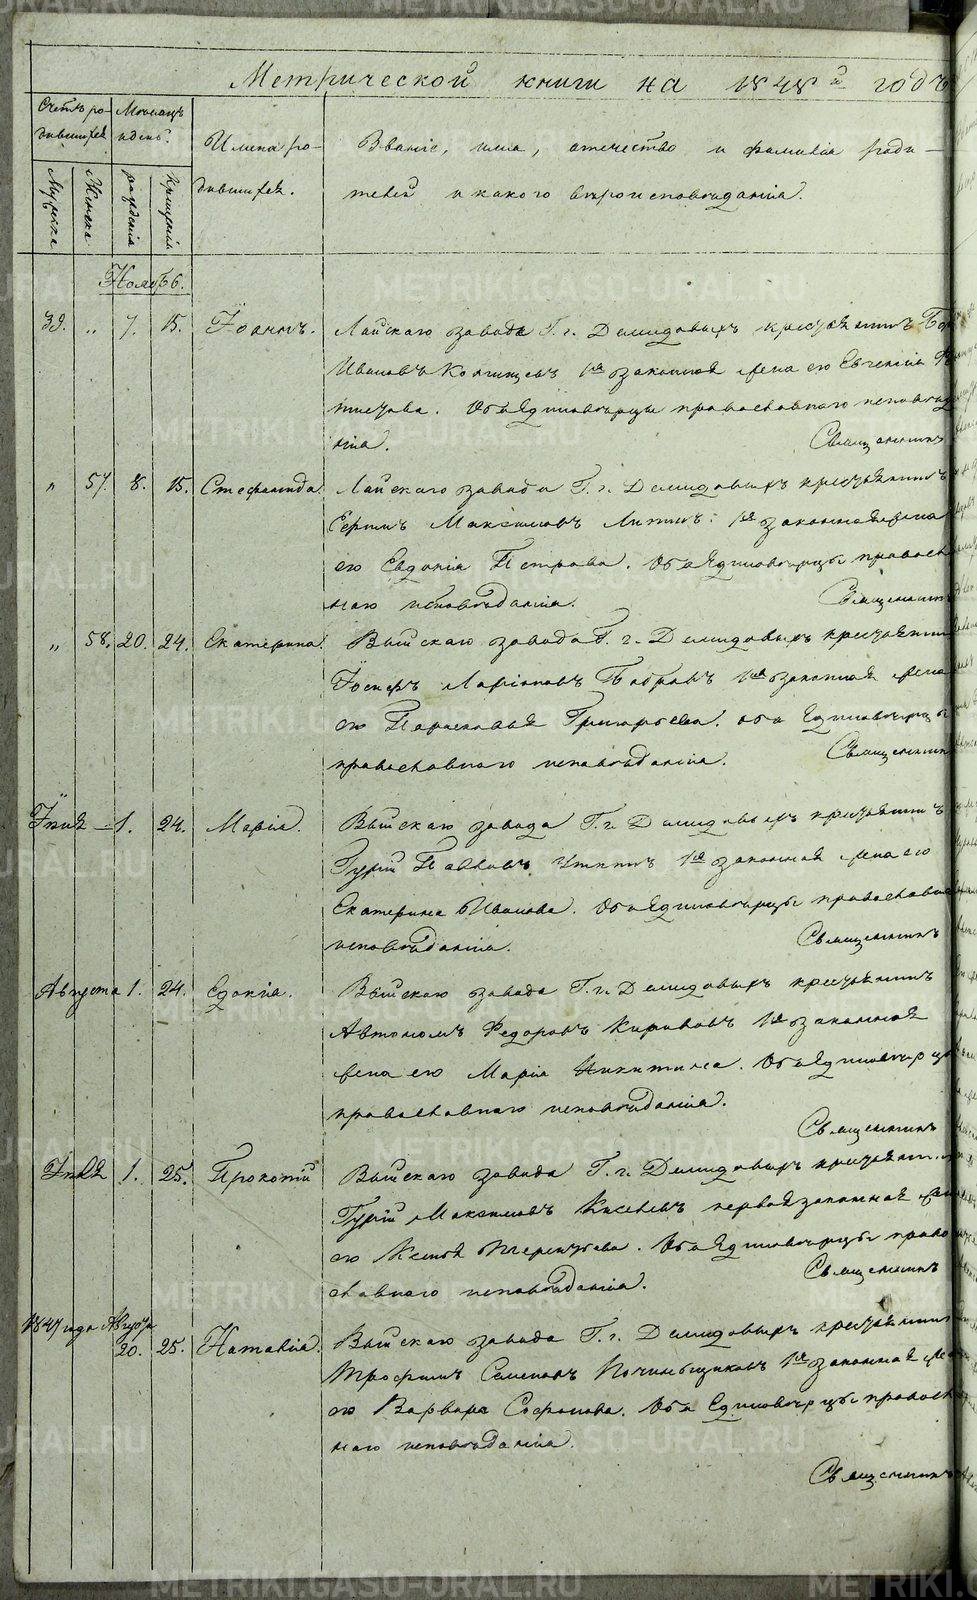 Метрической книги на 1848й годъ
Счетъ ро-
дившихся
Мужеска
Женска
Месяцъ
и день.
рожденія
крещенія
Имена ро-
дившихся.
Званіе, имя, отечество и фамилія роди-
телей и какого вѣроисповѣданія.
Ноябрь.
39. „ 7. 15. Іоаннъ. Лайскаго завода Г. г. Демидовыхъ крестьянинъ
Ивановъ 1я законная жена его Евгенія
Оба единовѣрцы православнаго исповѣд
нія. Священникъ
„ 57. 8. 15. Стефанида. Лайскаго завода Г. г. Демидовыхъ крестьянинъ
Максимовъ 1я законная жена
его Евдокія Петрова. Оба единовѣрцы правосл
наго исповѣданія. Священникъ
„ 58. 20. 24. Екатерина. Выйскаго завода Г. г. Демидовыхъ крестьянин
Іосифъ Ларіоновъ Бобровъ 1я законная жена
его Парасковья Григорьева. Оба единовѣрцы
православнаго исповѣданія. Священник
1. 24. Марія. Выйскаго завода Г. г. Демидовыхъ крестьянинъ
Гурій Павловъ Уткинъ 1я законная жена его
Екатерина Иванова. Оба единовѣрцы православна
исповѣданія. Священникъ
Августа 1. 24. Едокія. Выйскаго завода Г. г. Демидовыхъ крестьянинъ
Автономъ Федоровъ 1я законная
жена его Марія Никитина. Оба единовѣрцы
православнаго исповѣданія.
Священникъ
Іюля 1. 25. Прокопій Выйскаго завода Г. г. Демидовыхъ крестьянин
Гурій Максимовъ Киселевъ первая законная жен
его Ксенья Терентьева. Оба единовѣрцы право
славнаго исповѣданія. Священникъ
1847 года Августа
20. 25. Наталія. Выйскаго завода Г. г. Демидовыхъ крестьянин
Трофимъ Семеновъ 1я законная жен
его Варвара Софонова. Оба Единовѣрцы правосл
наго исповѣданія.
Священникъ
METRIKI.GASO-URAL.RU